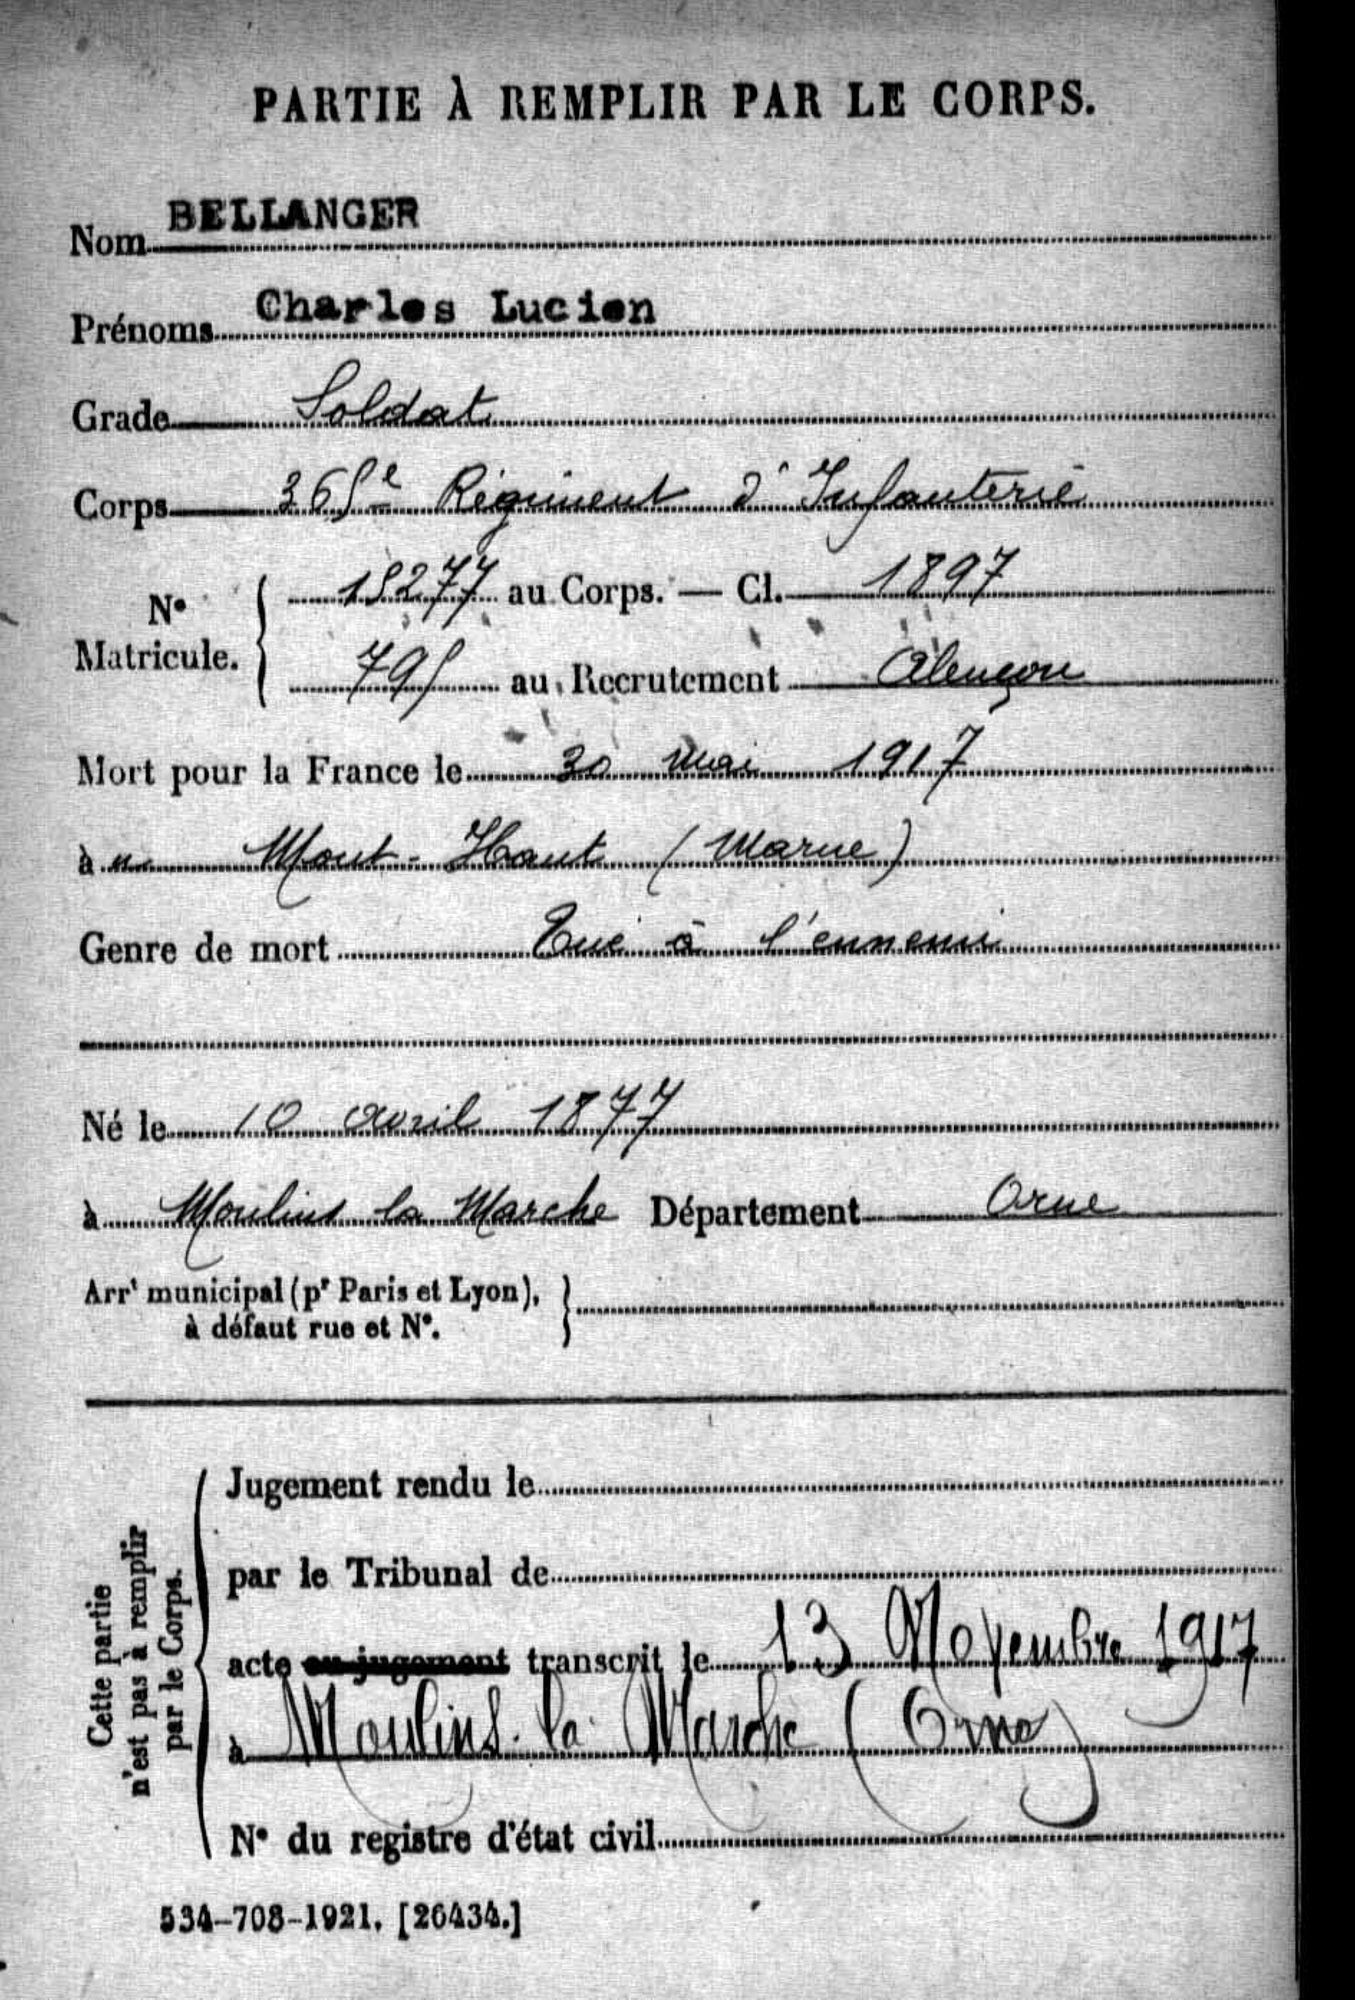 PARTIE À REMPLIR PAR LE CORPS.
Nom BELLANGER
Prénoms Charles Lucien
Grade Soldat
Corps 365e Régiment d'Infanterie
N° Matricule. 15277 au Corps. — Cl. 1897
795 au Recrutement Alençon
Mort pour la France le 30 mai 1917
à Mont-Haut (Marne)
Genre de mort Tué à l'ennemi
Né le 10 avril 1877
à Moulins la Marche Département Orne
Arrt municipal (pr Paris et Lyon),
à défaut rue et N°.
Cette partie
n'est pas à remplir
par le Corps.
Jugement rendu le
par le Tribunal de
acte ou jugement transcrit le 13 Novembre 1917
à Moulins-la-Marche (Orne)
N° du registre d'état civil
534-708-1921. [26434.]